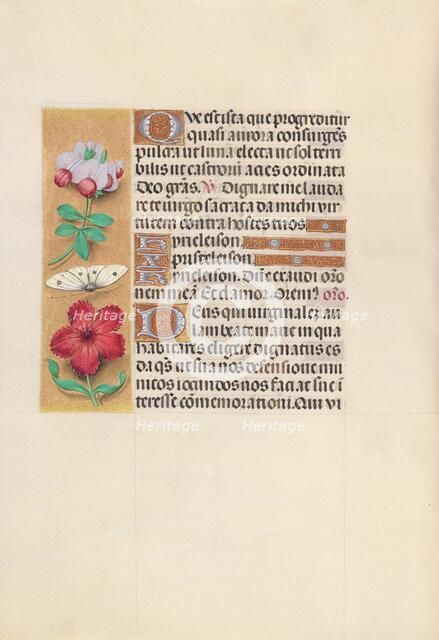 Que est ista que progreditur
quasi aurora consurgēs
pulcra ut luna electa ut sol terri
bilis ut castrorū acies ordinata
Deo grās. V Dignare me lauda
re te virgo sacrata da michi vir
tutem contra hostes tuos
Kyrieleison
Xpisteleison
Kyrieleison. Dn̄e exaudi orō
nem meā Et clamor Orem9 orō.
Deus qui virginalem au
lam beate marie in qua
habitares eligere dignatus es
da q̄s ut sua nos defensione mu
nitos iocundos nos faciat sue i
teresse cōmemorationi. Qui vi
Heritage Heritage
Heritage Heritage